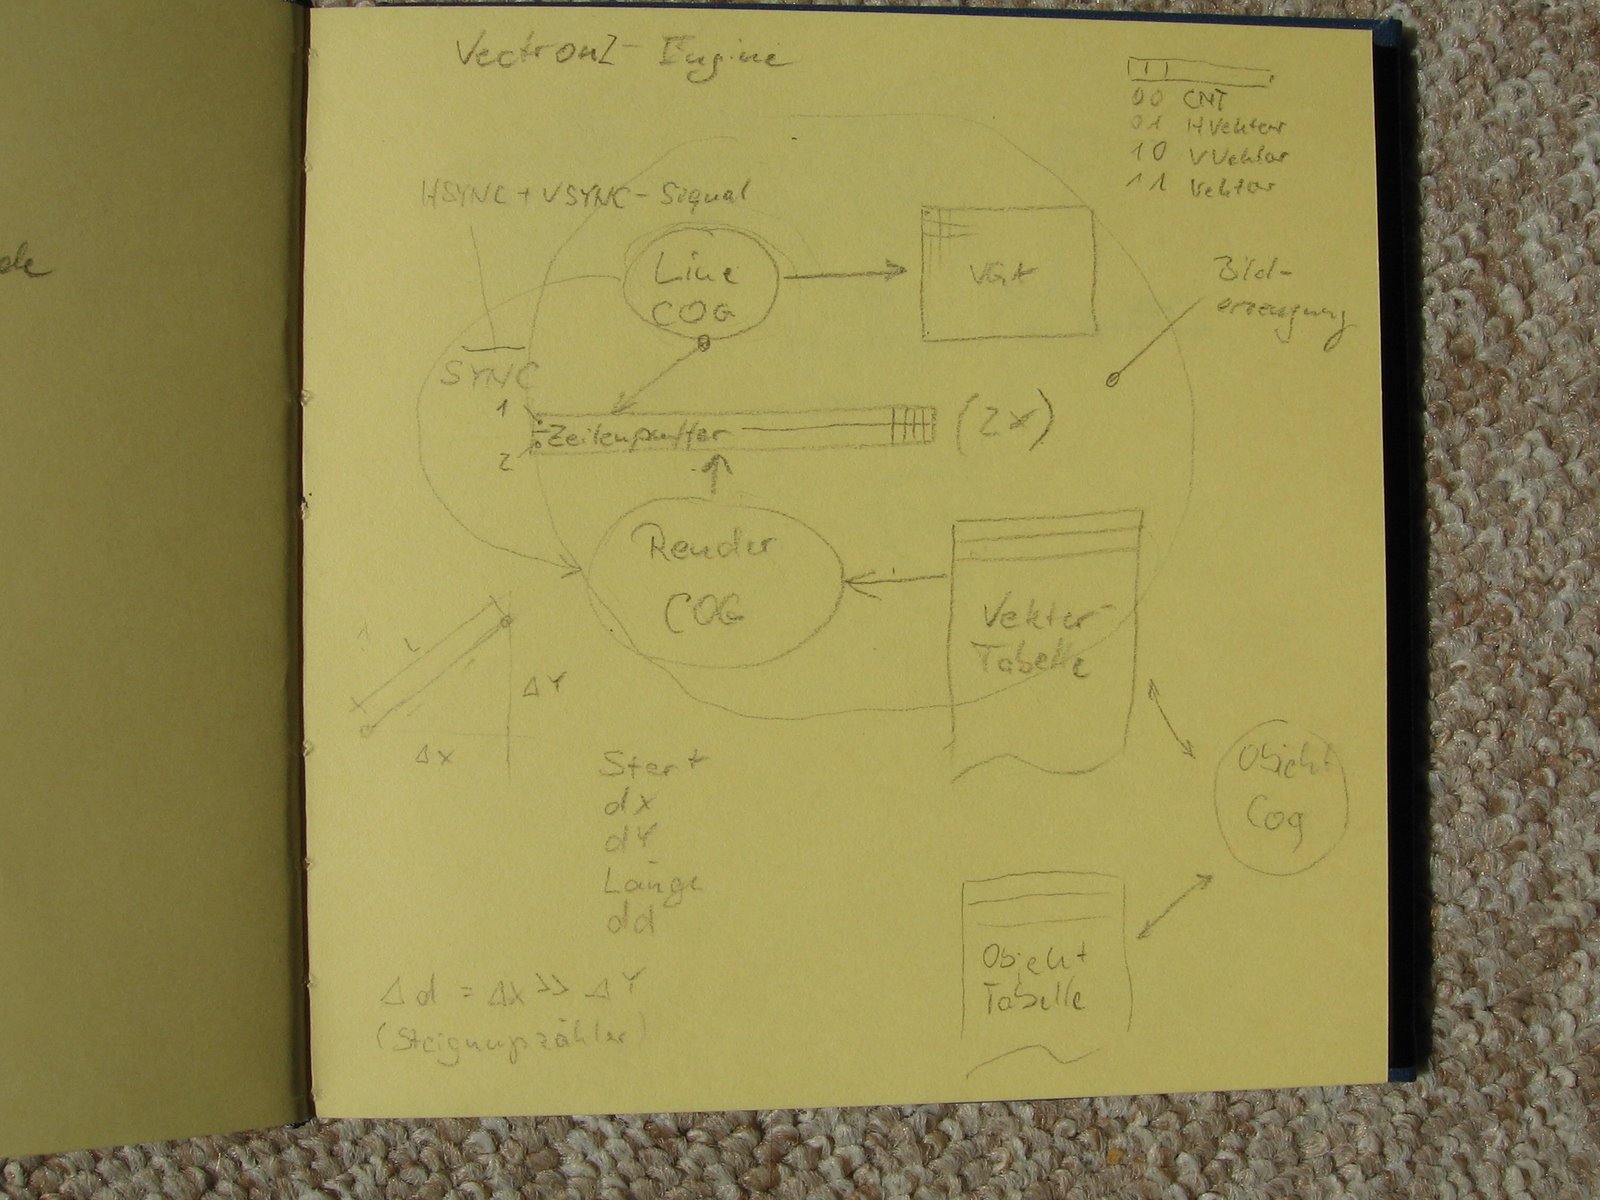 Vectron2-Engine
00 CNT
01 HVektor
10 VVektor
11 Vektor
HSYNC + VSYNC-Signal
Line
COG
VGA
Bild-
erzeugung
SYNC
1
Zeilenpuffer
(2x)
2
Render
COG
Vektor-
Tabelle
L
ΔY
ΔX
Objekt
Cog
Start
dx
dY
Länge
dd
Objekt
Tabelle
Δd = ΔX >> ΔY
(Steigungszähler)